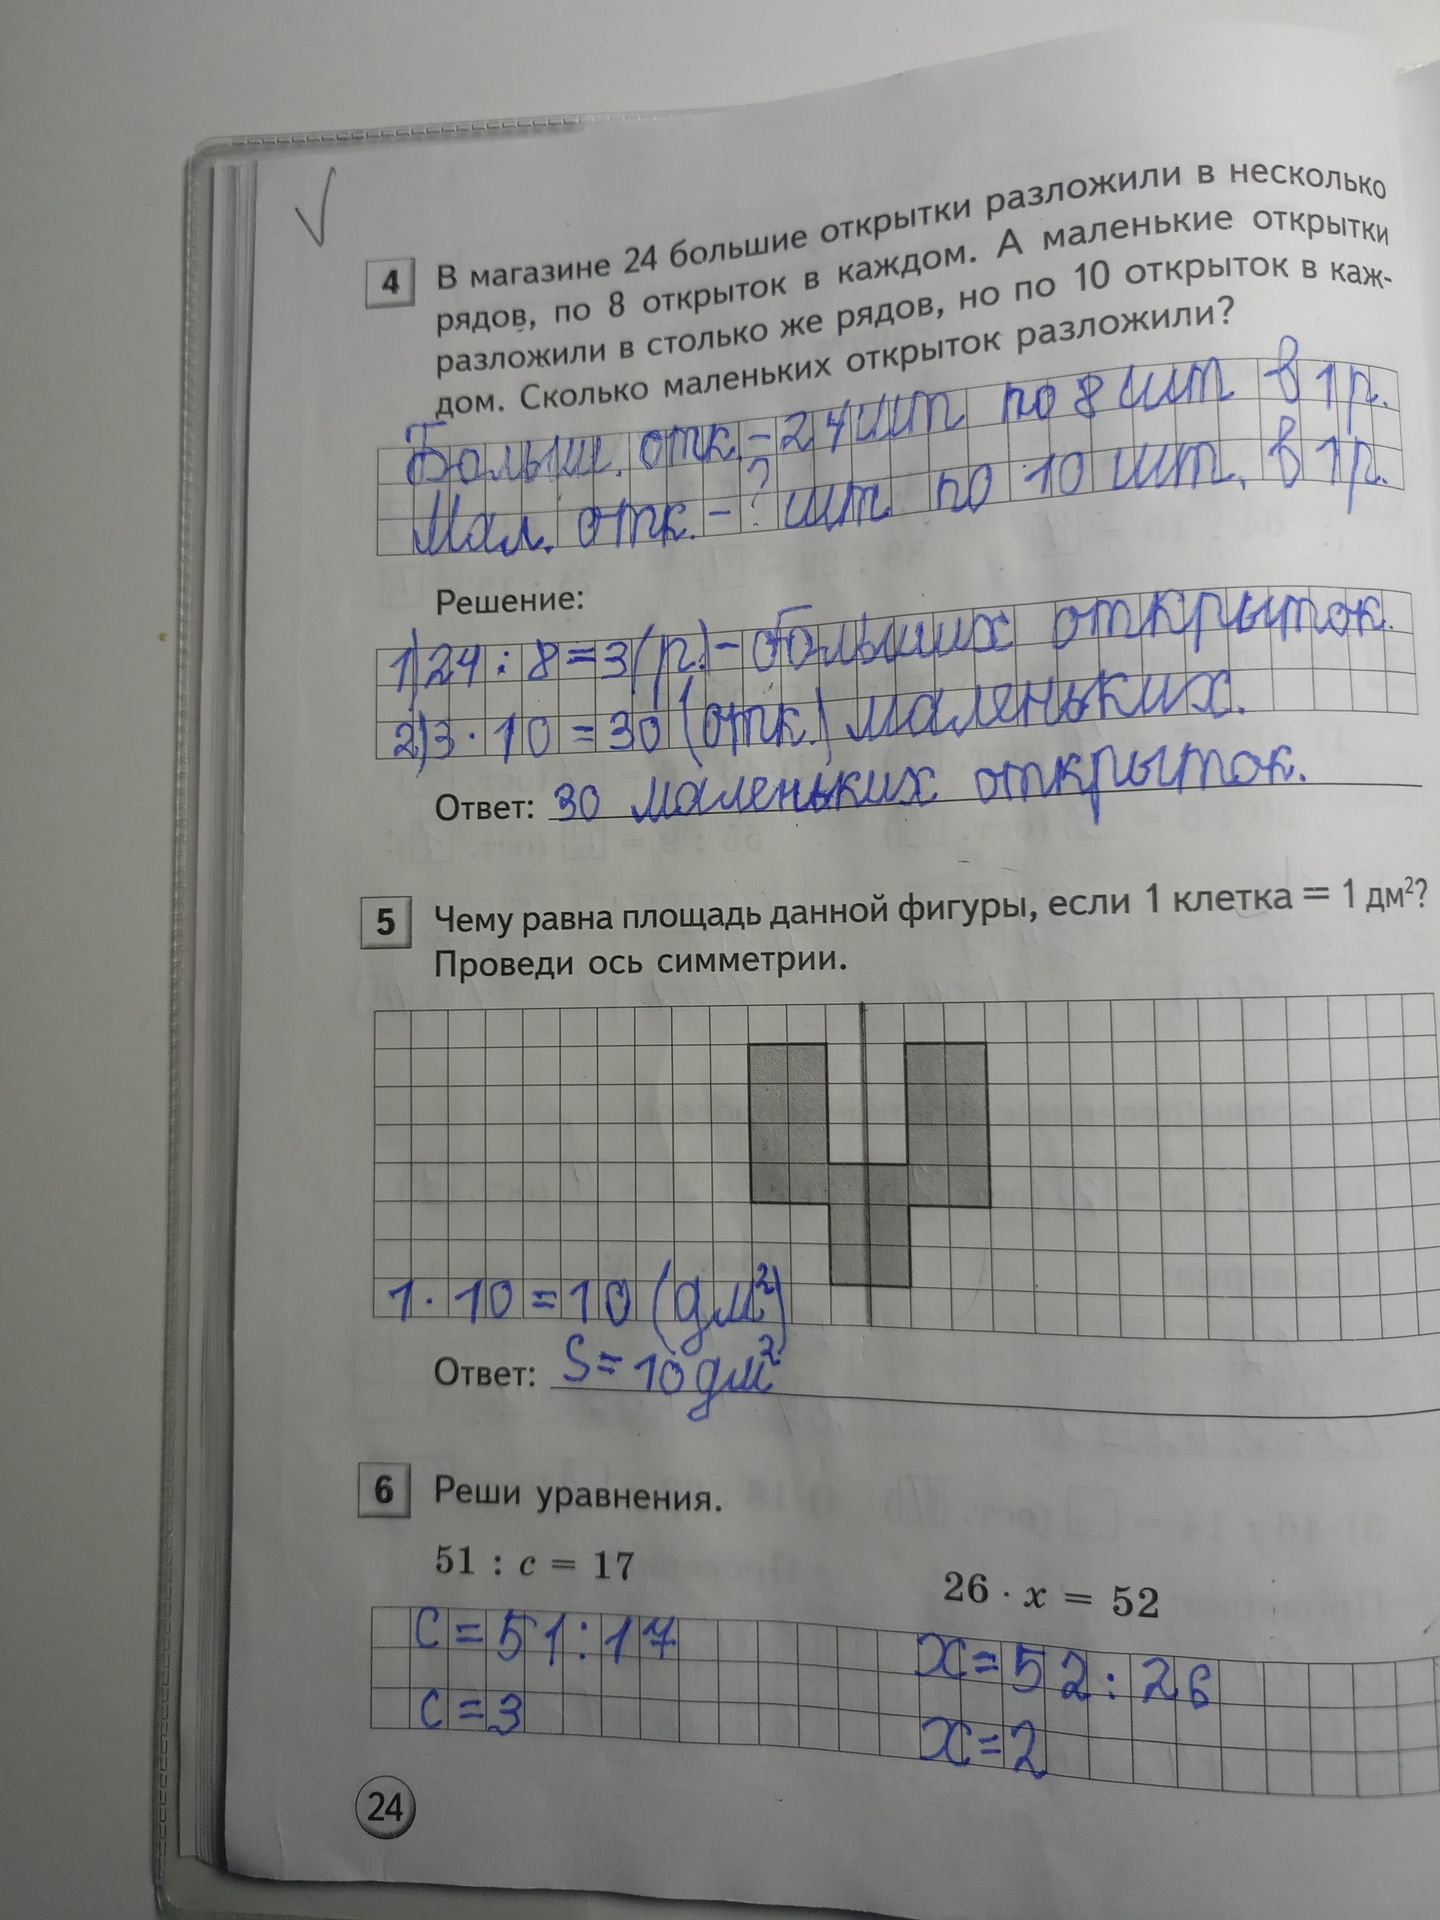 4 В магазине 24 большие открытки разложили в несколько
рядов, по 8 открыток в каждом. А маленькие открытки
разложили в столько же рядов, но по 10 открыток в каж-
дом. Сколько маленьких открыток разложили?
Больш. отк. - 24 шт по 8 шт в 1 р.
Мал. отк. - ? шт по 10 шт. в 1 р.
Решение:
1) 24 : 8 = 3 (р.) - больших открыток.
2) 3 · 10 = 30 (отк.) маленьких.
Ответ: 30 маленьких открыток.
5 Чему равна площадь данной фигуры, если 1 клетка = 1 дм²?
Проведи ось симметрии.
1 · 10 = 10 (дм²)
Ответ: S = 10 дм²
6 Реши уравнения.
51 : c = 17
26 · x = 52
c = 51 : 17
x = 52 : 26
c = 3
x = 2
24